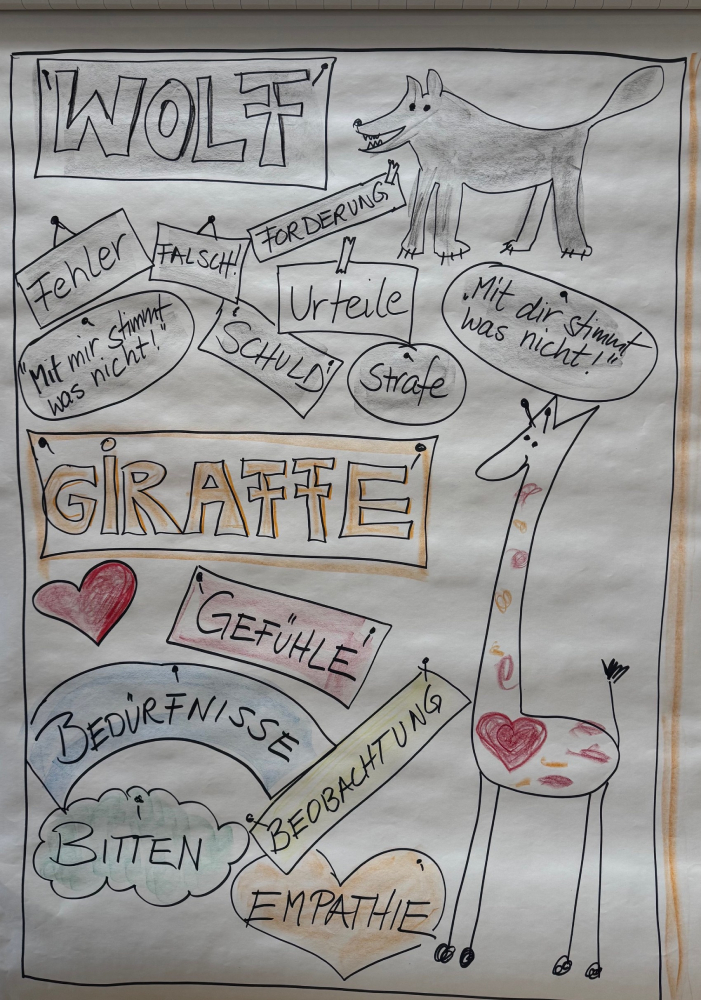 WOLF
FORDERUNG
Fehler
FALSCH!
Urteile
"Mit dir stimmt
was nicht!"
"Mit mir stimmt
was nicht!"
SCHULD
Strafe
GIRAFFE
GEFÜHLE
BEDÜRFNISSE
BEOBACHTUNG
BITTEN
EMPATHIE